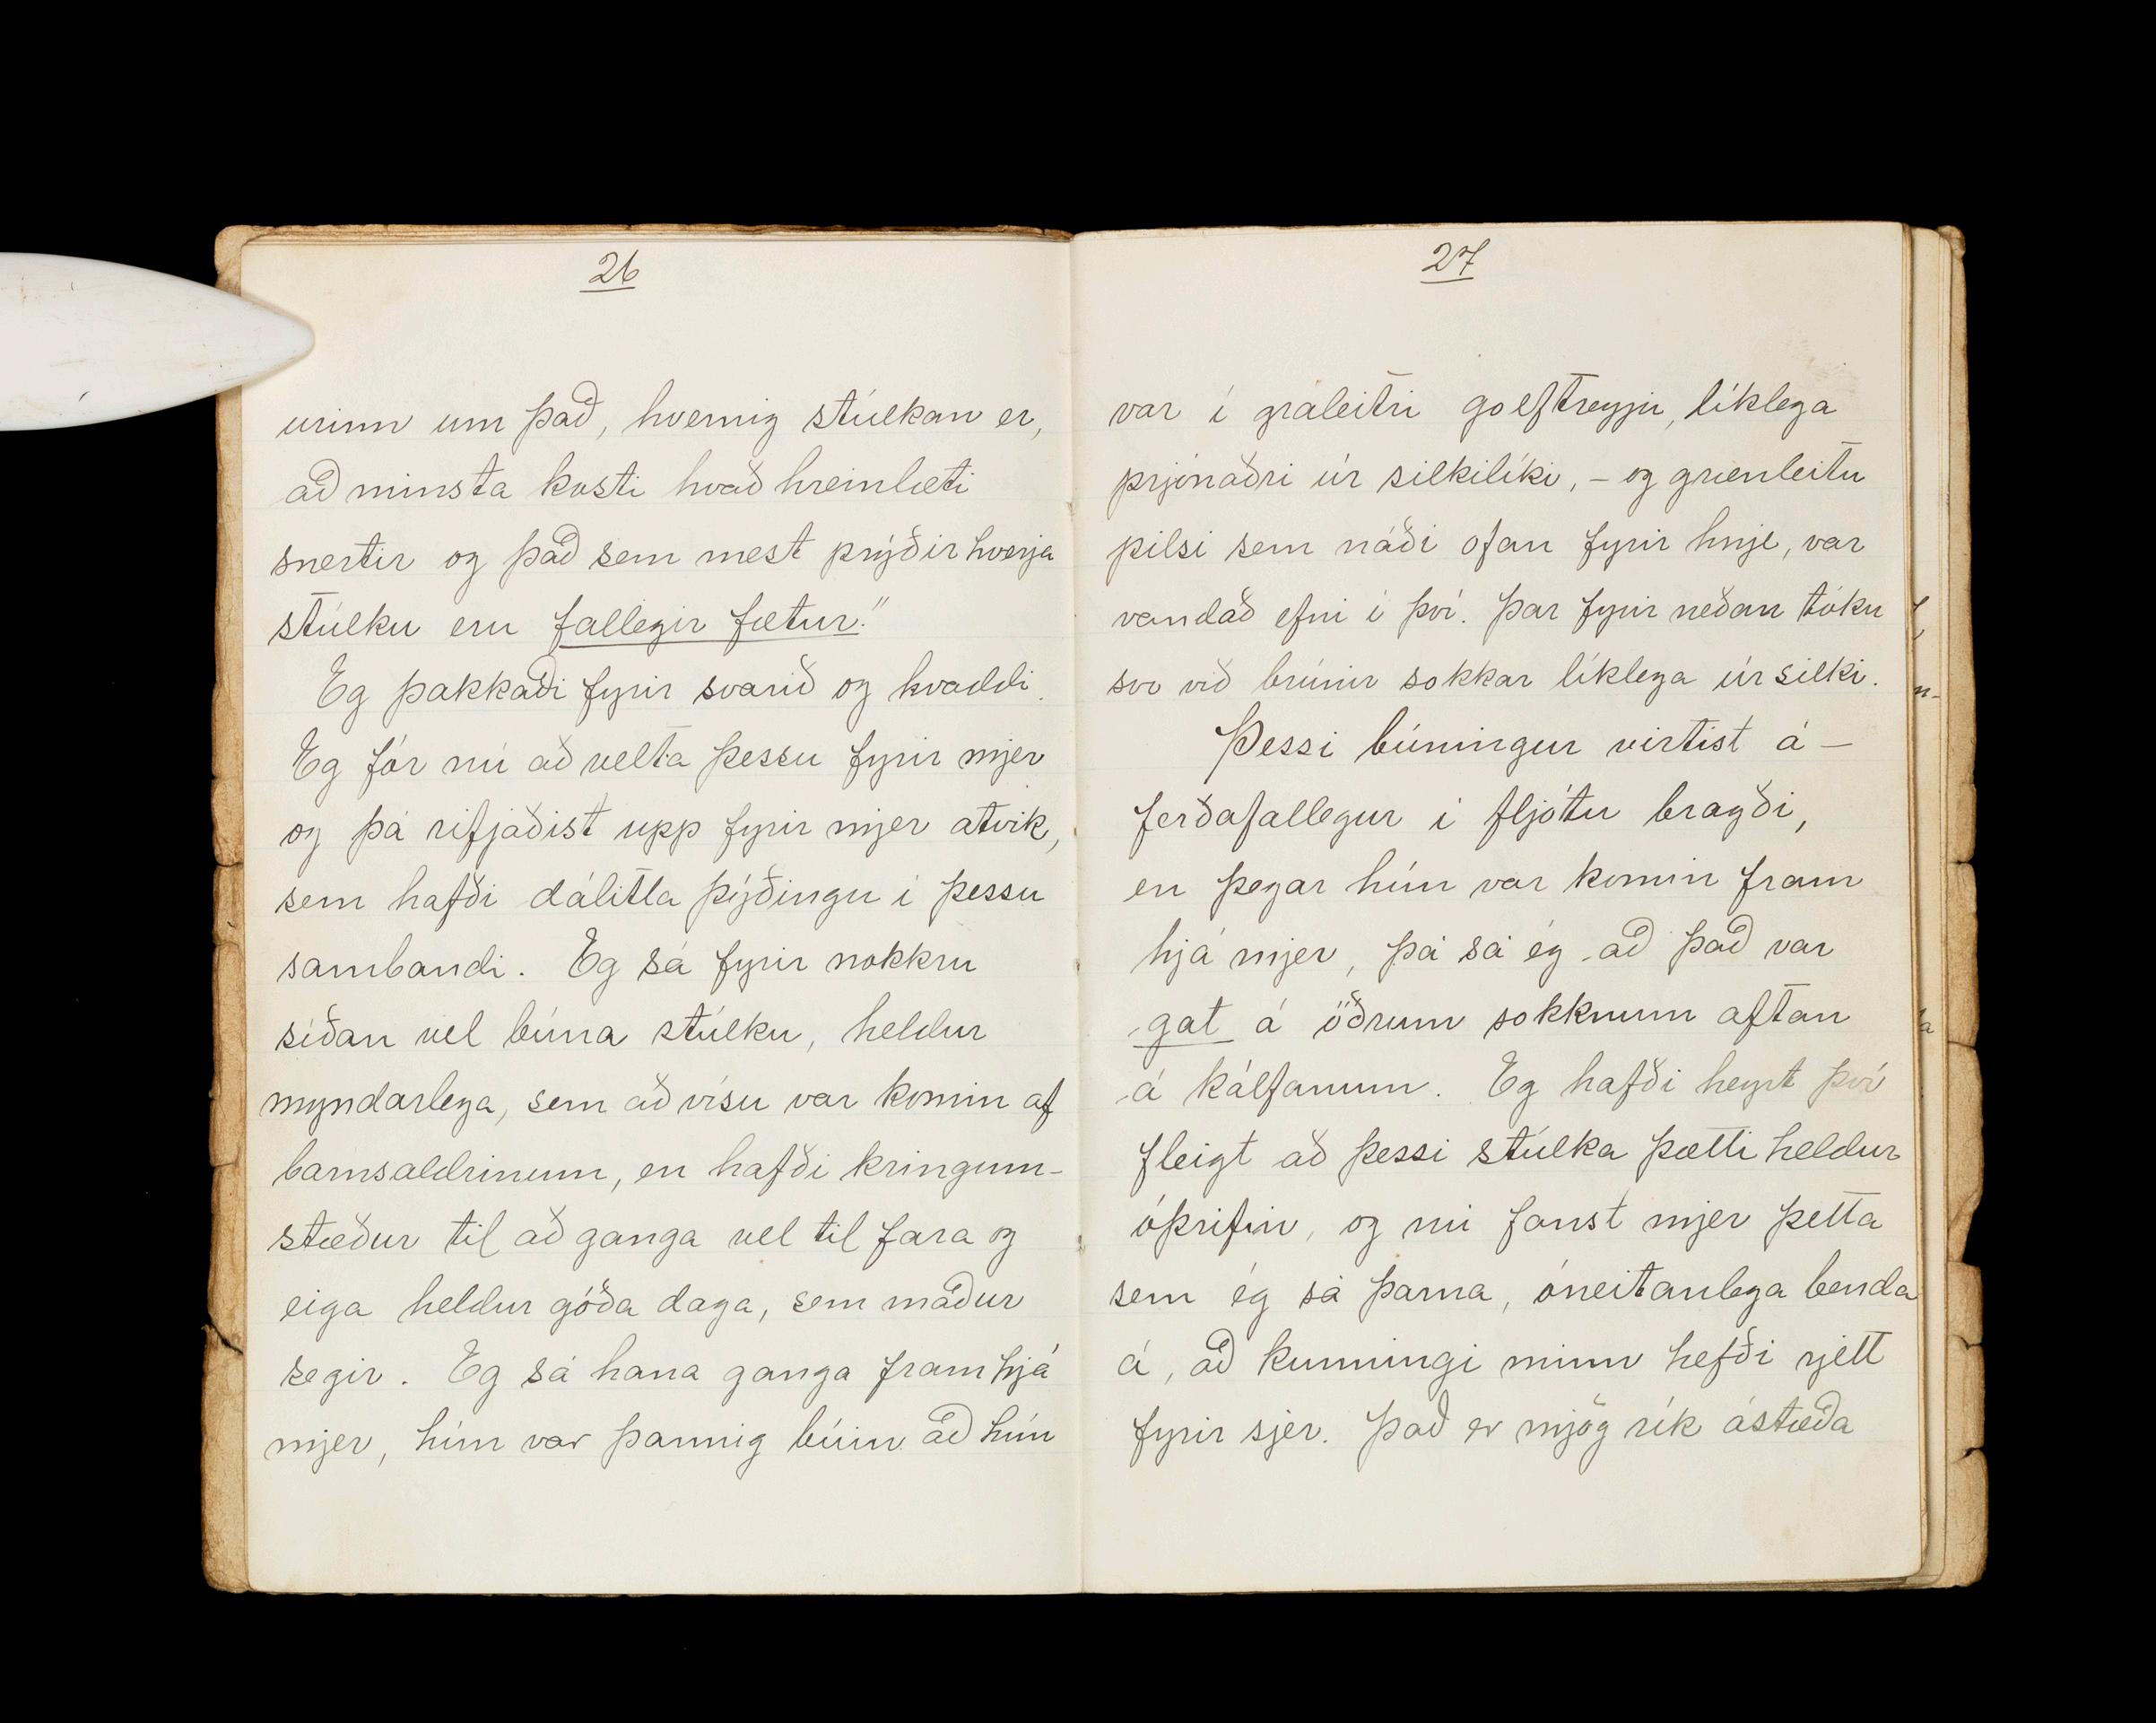 26
urinn um það, hvernig stúlkan er,
að minsta kosti hvað hreinlæti
snertir og það sem mest prýðir hverja
stúlku eru fallegir fætur."
Eg þakkaði fyrir svarið og kvaddi.
Eg fór nú að velta þessu fyrir mjer
og þá rifjaðist upp fyrir mjer atvik,
sem hafði dálitla þýðingu í þessu
sambandi. Eg sá fyrir nokkru
síðan vel búna stúlku, heldur
myndarlega, sem að vísu var komin af
barnsaldrinum, en hafði kringum-
stæður til að ganga vel til fara og
eiga heldur góða daga, sem maður
segir. Eg sá hana ganga fram hjá
mjer, hún var þannig búin að hún
27
var í gráleitri golftreyju, líklega
prjónaðri úr silkilíki, - og grænleitu
pilsi sem náði ofan fyrir hnje, var
vandað efni í því. Þar fyrir neðan tóku
svo við brúnir sokkar líklega úr silki.
Þessi búningur virtist á-
ferðafallegur í fljótu bragði,
en þegar hún var komin fram
hjá mjer, þá sá ég að það var
gat á öðrum sokknum aftan
á kálfanum. Eg hafði heyrt því
fleigt að þessi stúlka þætti heldur
óþrifin, og nú fanst mjer þetta
sem ég sá þarna, óneitanlega benda
á, að kunningi minn hefði rjett
fyrir sjer. Það er mjög rík ástæða